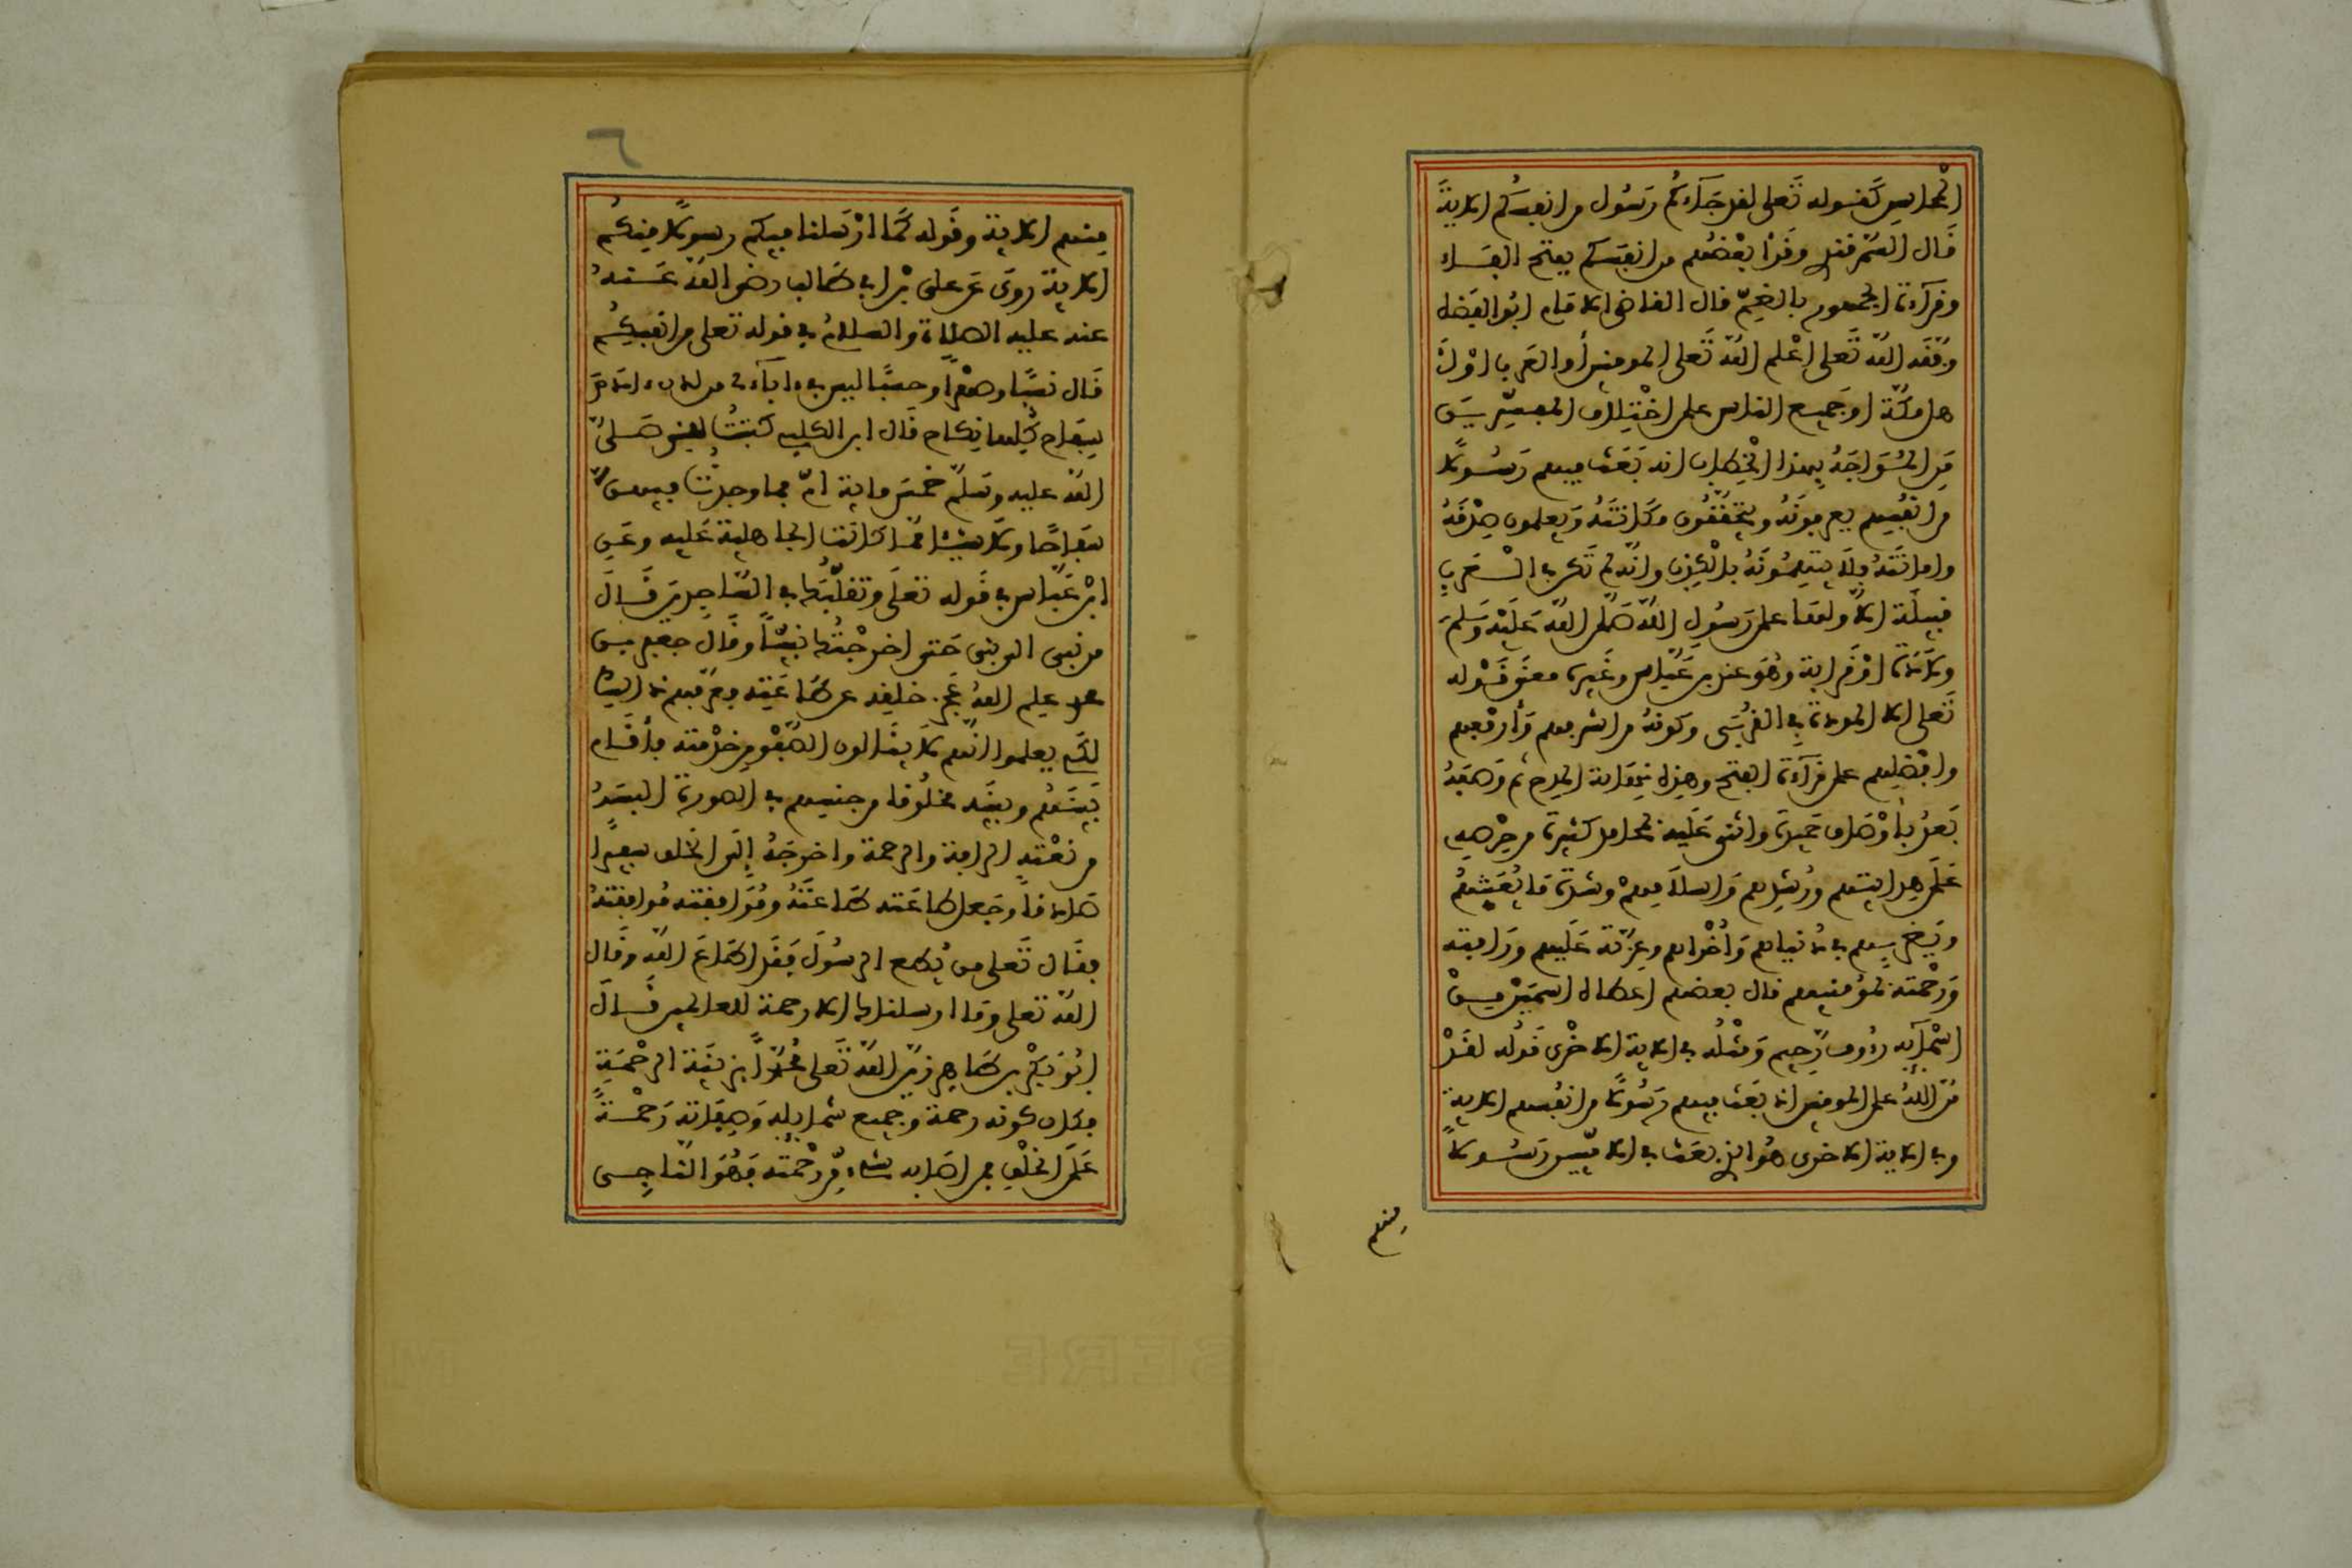 المحاسن كقوله تعلى لقد جاءكم رسول من انفسكم الاية
قال السمرقندي وقرأ بعضهم من انفسكم بفتح الفاء
وقراءة الجمهور بالضم قال القاضي الامام ابو الفضل
وفقه الله تعلى اعلم الله تعلى المومنين أو العرب او
اهل مكة او جميع الناس على اختلاف المفسرين
من المواجه بهذا الخطاب انه بعث فيهم رسولا
من انفسهم يعرفونه ويتحققون مكانته ويعلمون صدقه
وامانته فلا يتهمونه بالكذب وانه لم تكن في العرب
قبيلة الا ولها على رسول الله صلى الله عليه وسلم
ولادة او قرابة وهو عند بن عباس وغيره معنى قوله
تعلى الا المودة في القربى وكونه من اشرفهم وأرفعهم
وافضلهم على قراءة الفتح وهذه نهاية المدح ثم وصفه
بعد بأوصاف حميدة واثنى عليه بمحامد كثيرة من حرصه
على هدايتهم ورشدهم واسلامهم وشدة ما يعنتهم
ويضر بهم في دنياهم وأخراهم وعزته عليهم ورافته
ورحمته لمؤمنيهم قال بعضهم اعطاه اسمين من
اسمآيه رءوف رحيم ومثله في الاية الاخرى قوله لقد
من الله على المومنين اذ بعث فيهم رسولا من انفسهم الاية
وفي الاية الاخرى هو الذي بعث في الاميين رسولا
منهم
٦
منهم الاية وقوله كما ارسلنا فيكم رسولا منكم
الاية روى عن على بن ابي طالب رضي الله عنه
عنه عليه الصلاة والسلام في قوله تعلى من انفسكم
قال نسبا وصهرا وحسبا ليس في ءابآءي من لدن ءادم
سفاح كلها نكاح قال ابن الكلبي كتبت للنبي صلى
الله عليه وسلم خمس ماية ام فما وجدت فيهن
سفاحا ولا شيئا مما كانت الجاهلية عليه وعن
ابن عباس في قوله تعلى وتقلبك في الساجدين قال
من نبي الى نبي حتى اخرجتك نبيا وقال جعفر بن
محمد علم الله عجز خليقه عن طاعته فعرفهم ذالك
لكي يعلموا انهم لا ينالون الصفو من خدمته فأقام
بينهم وبينه مخلوقا من جنسهم في الصورة البسه
من نعته الرافة والرحمة واخرجه إلى الخلق سفيرا
صادقا وجعل طاعته طاعته وموافقته موافقته
فقال تعلى من يطع الرسول فقد اطاع الله وقال
الله تعلى وما ارسلناك الا رحمة للعالمين قال
ابو بكر بن طاهر زين الله تعلى محمدا بزينة الرحمة
فكان كونه رحمة وجميع شمايله وصفاته رحمة
على الخلق فمن اصابه شيء من رحمته فهو الناجى